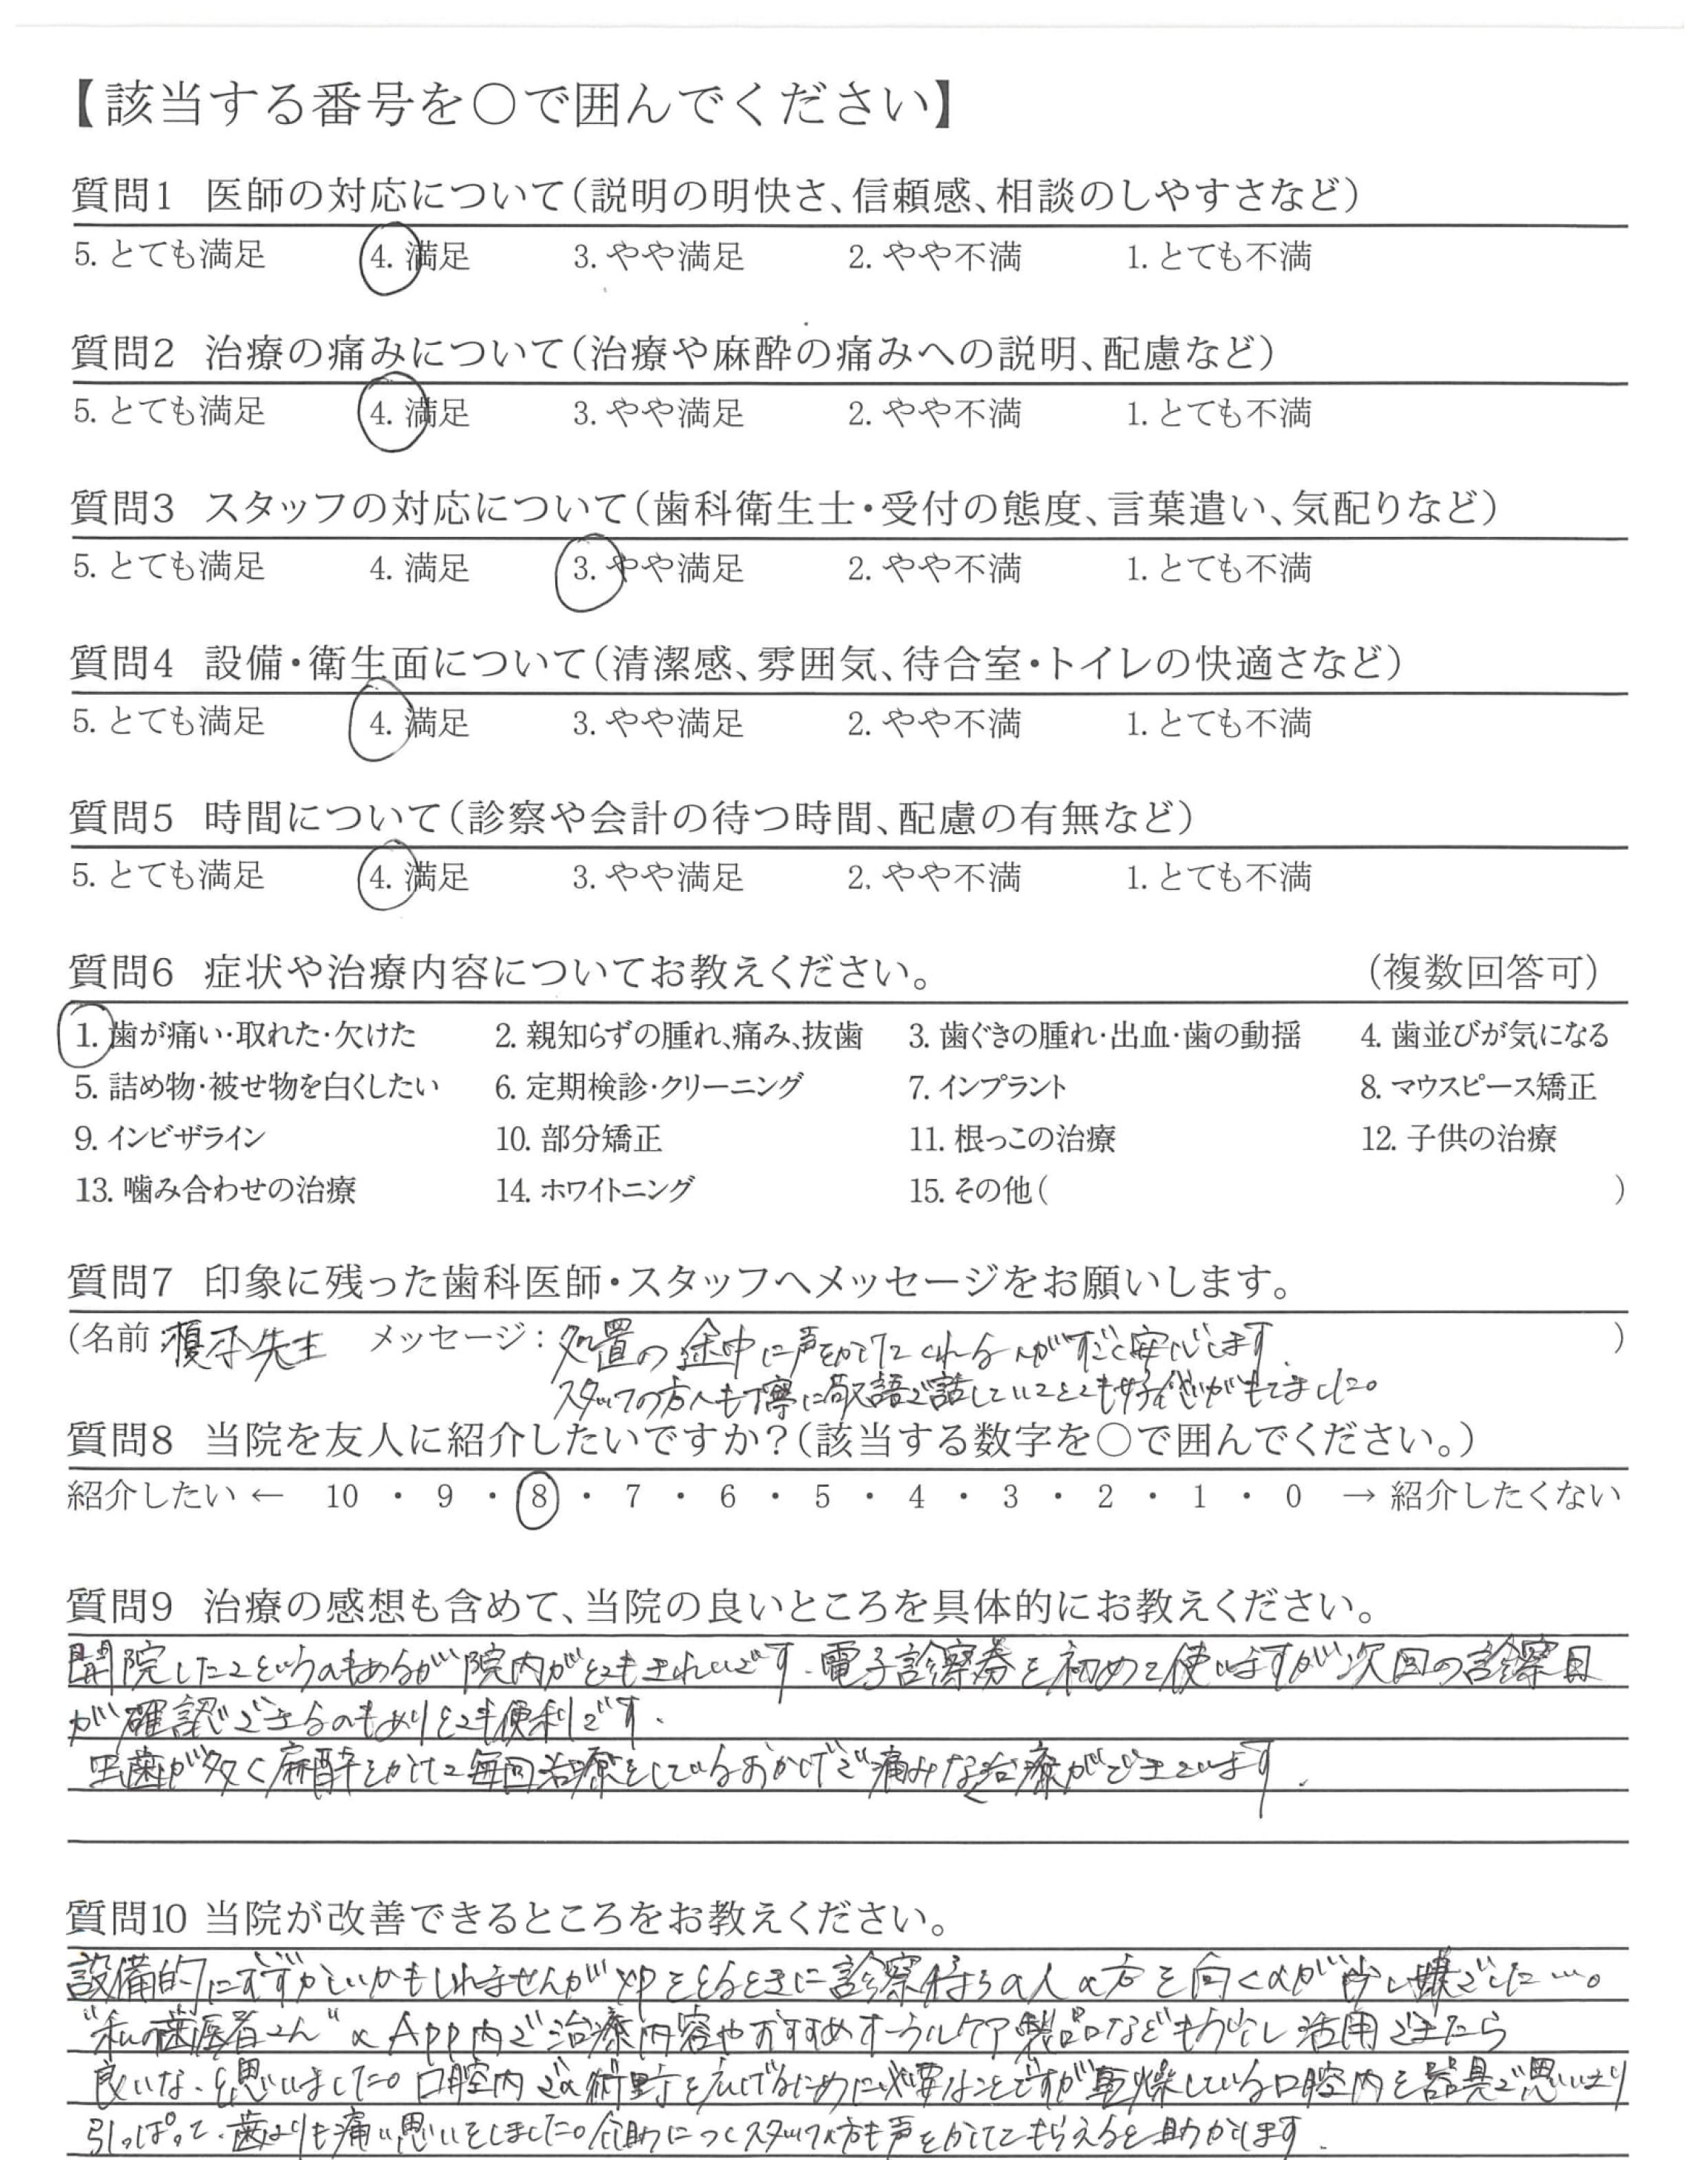 【該当する番号を〇で囲んでください】
質問1 医師の対応について(説明の明快さ、信頼感、相談のしやすさなど)
5. とても満足 4. 満足 3. やや満足 2. やや不満 1. とても不満
質問2 治療の痛みについて(治療や麻酔の痛みへの説明、配慮など)
5. とても満足 4. 満足 3. やや満足 2. やや不満 1. とても不満
質問3 スタッフの対応について(歯科衛生士・受付の態度、言葉遣い、気配りなど)
5. とても満足 4. 満足 3. やや満足 2. やや不満 1. とても不満
質問4 設備・衛生面について(清潔感、雰囲気、待合室・トイレの快適さなど)
5. とても満足 4. 満足 3. やや満足 2. やや不満 1. とても不満
質問5 時間について(診察や会計の待つ時間、配慮の有無など)
5. とても満足 4. 満足 3. やや満足 2. やや不満 1. とても不満
質問6 症状や治療内容についてお教えください。 (複数回答可)
1. 歯が痛い・取れた・欠けた 2. 親知らずの腫れ、痛み、抜歯 3. 歯ぐきの腫れ・出血・歯の動揺 4. 歯並びが気になる
5. 詰め物・被せ物を白くしたい 6. 定期検診・クリーニング 7. インプラント 8. マウスピース矯正
9. インビザライン 10. 部分矯正 11. 根っこの治療 12. 子供の治療
13. 噛み合わせの治療 14. ホワイトニング 15. その他( )
質問7 印象に残った歯科医師・スタッフへメッセージをお願いします。
(名前: 先生 メッセージ: 処置の途中に声をかけてくれるのがすごく安心します. )
スタッフの方々も丁寧に敬語で話していてとても好感がもてました。
質問8 当院を友人に紹介したいですか?(該当する数字を〇で囲んでください。)
紹介したい ← 10 ・ 9 ・ 8 ・ 7 ・ 6 ・ 5 ・ 4 ・ 3 ・ 2 ・ 1 ・ 0 → 紹介したくない
質問9 治療の感想も含めて、当院の良いところを具体的にお教えください。
開院したてというのもあるが院内がとてもきれいです. 電子診察券を初めて使いますが次回の診察日
が確認できるのもありとても便利です.
虫歯が多く麻酔をかけて毎回治療をしているおかげで痛みなく治療ができています.
質問10 当院が改善できるところをお教えください。
設備的にむずかしいかもしれませんが をとるときに診察待ちの人の方を向くのが少し嫌でした…。
"私の歯医者さん"のApp内で治療内容やおすすめオーラルケア製品などもう少し活用できたら
良いな、と思いました。口腔内での術野を広げるために必要なことですが乾燥している口腔内を器具で思いきり
引っぱって、歯よりも痛い思いをしました。介助につくスタッフの方も声をかけてもらえると助かります.